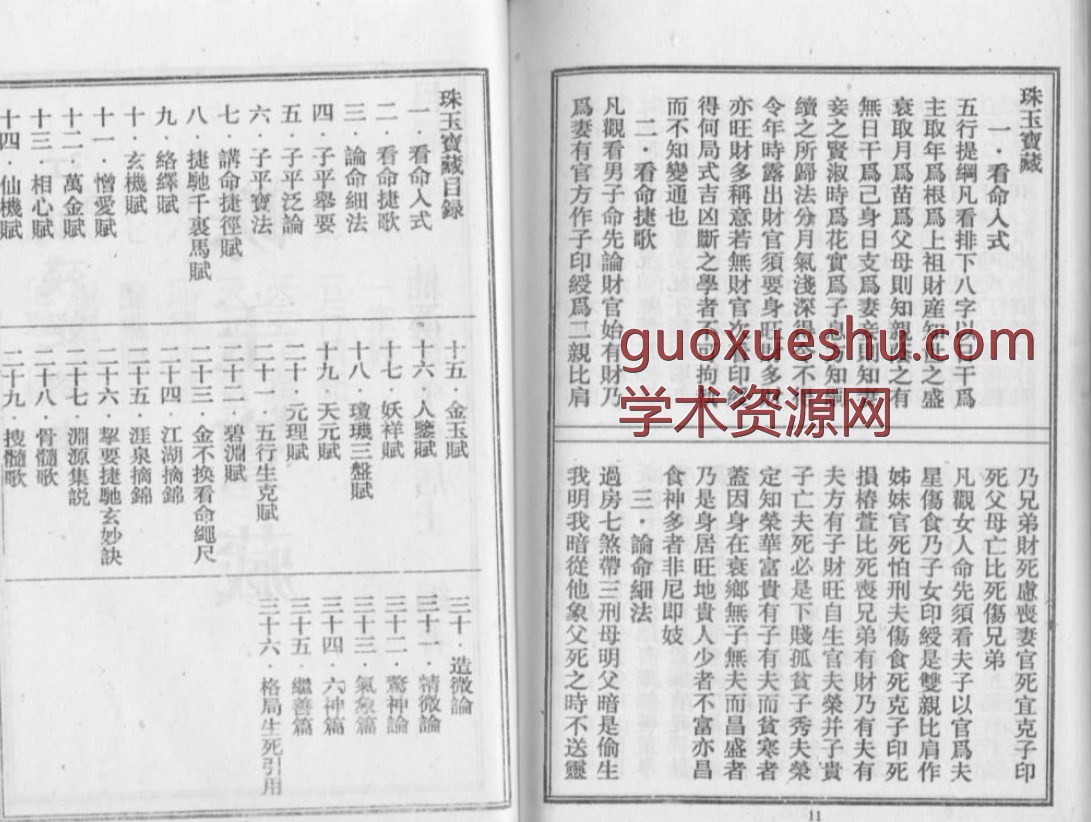 珠玉寶藏
一．看命入式
五行提綱凡看排下八字以日干爲
主取年爲根爲上祖財産知世之盛
衰取月爲苗爲父母則知親蔭之有
無日干爲己身日支爲妻妾則知妻
妾之賢淑時爲花實爲子息知嗣
續之所歸法分月氣淺深得令不得
令年時露出財官須要身旺多
亦旺財多稱意若無財官次看印綬
得何局式吉凶斷之學者不可拘執
而不知變通也
二．看命捷歌
凡觀看男子命先論財官始有財乃
爲妻有官方作子印綬爲二親比肩
乃兄弟財死慮喪妻官死宜克子印
死父母亡比死傷兄弟
凡觀女人命先須看夫子以官爲夫
星傷食乃子女印綬是雙親比肩作
姊妹官死怕刑夫傷食死克子印死
損椿萱比死喪兄弟有財乃有夫有
夫方有子財旺自生官夫榮并子貴
子亡夫死必是下賤孤貧子秀夫榮
定知榮華富貴有子有夫而貧寒者
蓋因身在衰鄉無子無夫而昌盛者
乃是身居旺地貴人少者不富亦昌
食神多者非尼即妓
三．論命細法
過房七煞帶三刑母明父暗是偷生
我明我暗從他象父死之時不送靈
11
珠玉寶藏目録
一．看命入式
二．看命捷歌
三．論命細法
四．子平舉要
五．子平泛論
六．子平寶法
七．講命捷徑賦
八．捷馳千裏馬賦
九．絡繹賦
十．玄機賦
十一．憎愛賦
十二．萬金賦
十三．相心賦
十四．仙機賦
十五．金玉賦
十六．人鑒賦
十七．妖祥賦
十八．瓊璣三盤賦
十九．天元賦
二十．元理賦
二十一．五行生克賦
二十二．碧淵賦
二十三．金不換看命繩尺
二十四．江湖摘錦
二十五．涯泉摘錦
二十六．挈要捷馳玄妙訣
二十七．淵源集説
二十八．骨髓歌
二十九．搜髓歌
三十．造微論
三十一．精微論
三十二．驚神論
三十三．氣象篇
三十四．六神篇
三十五．繼善篇
三十六．格局生死引用
guoxueshu.com
学术资源网